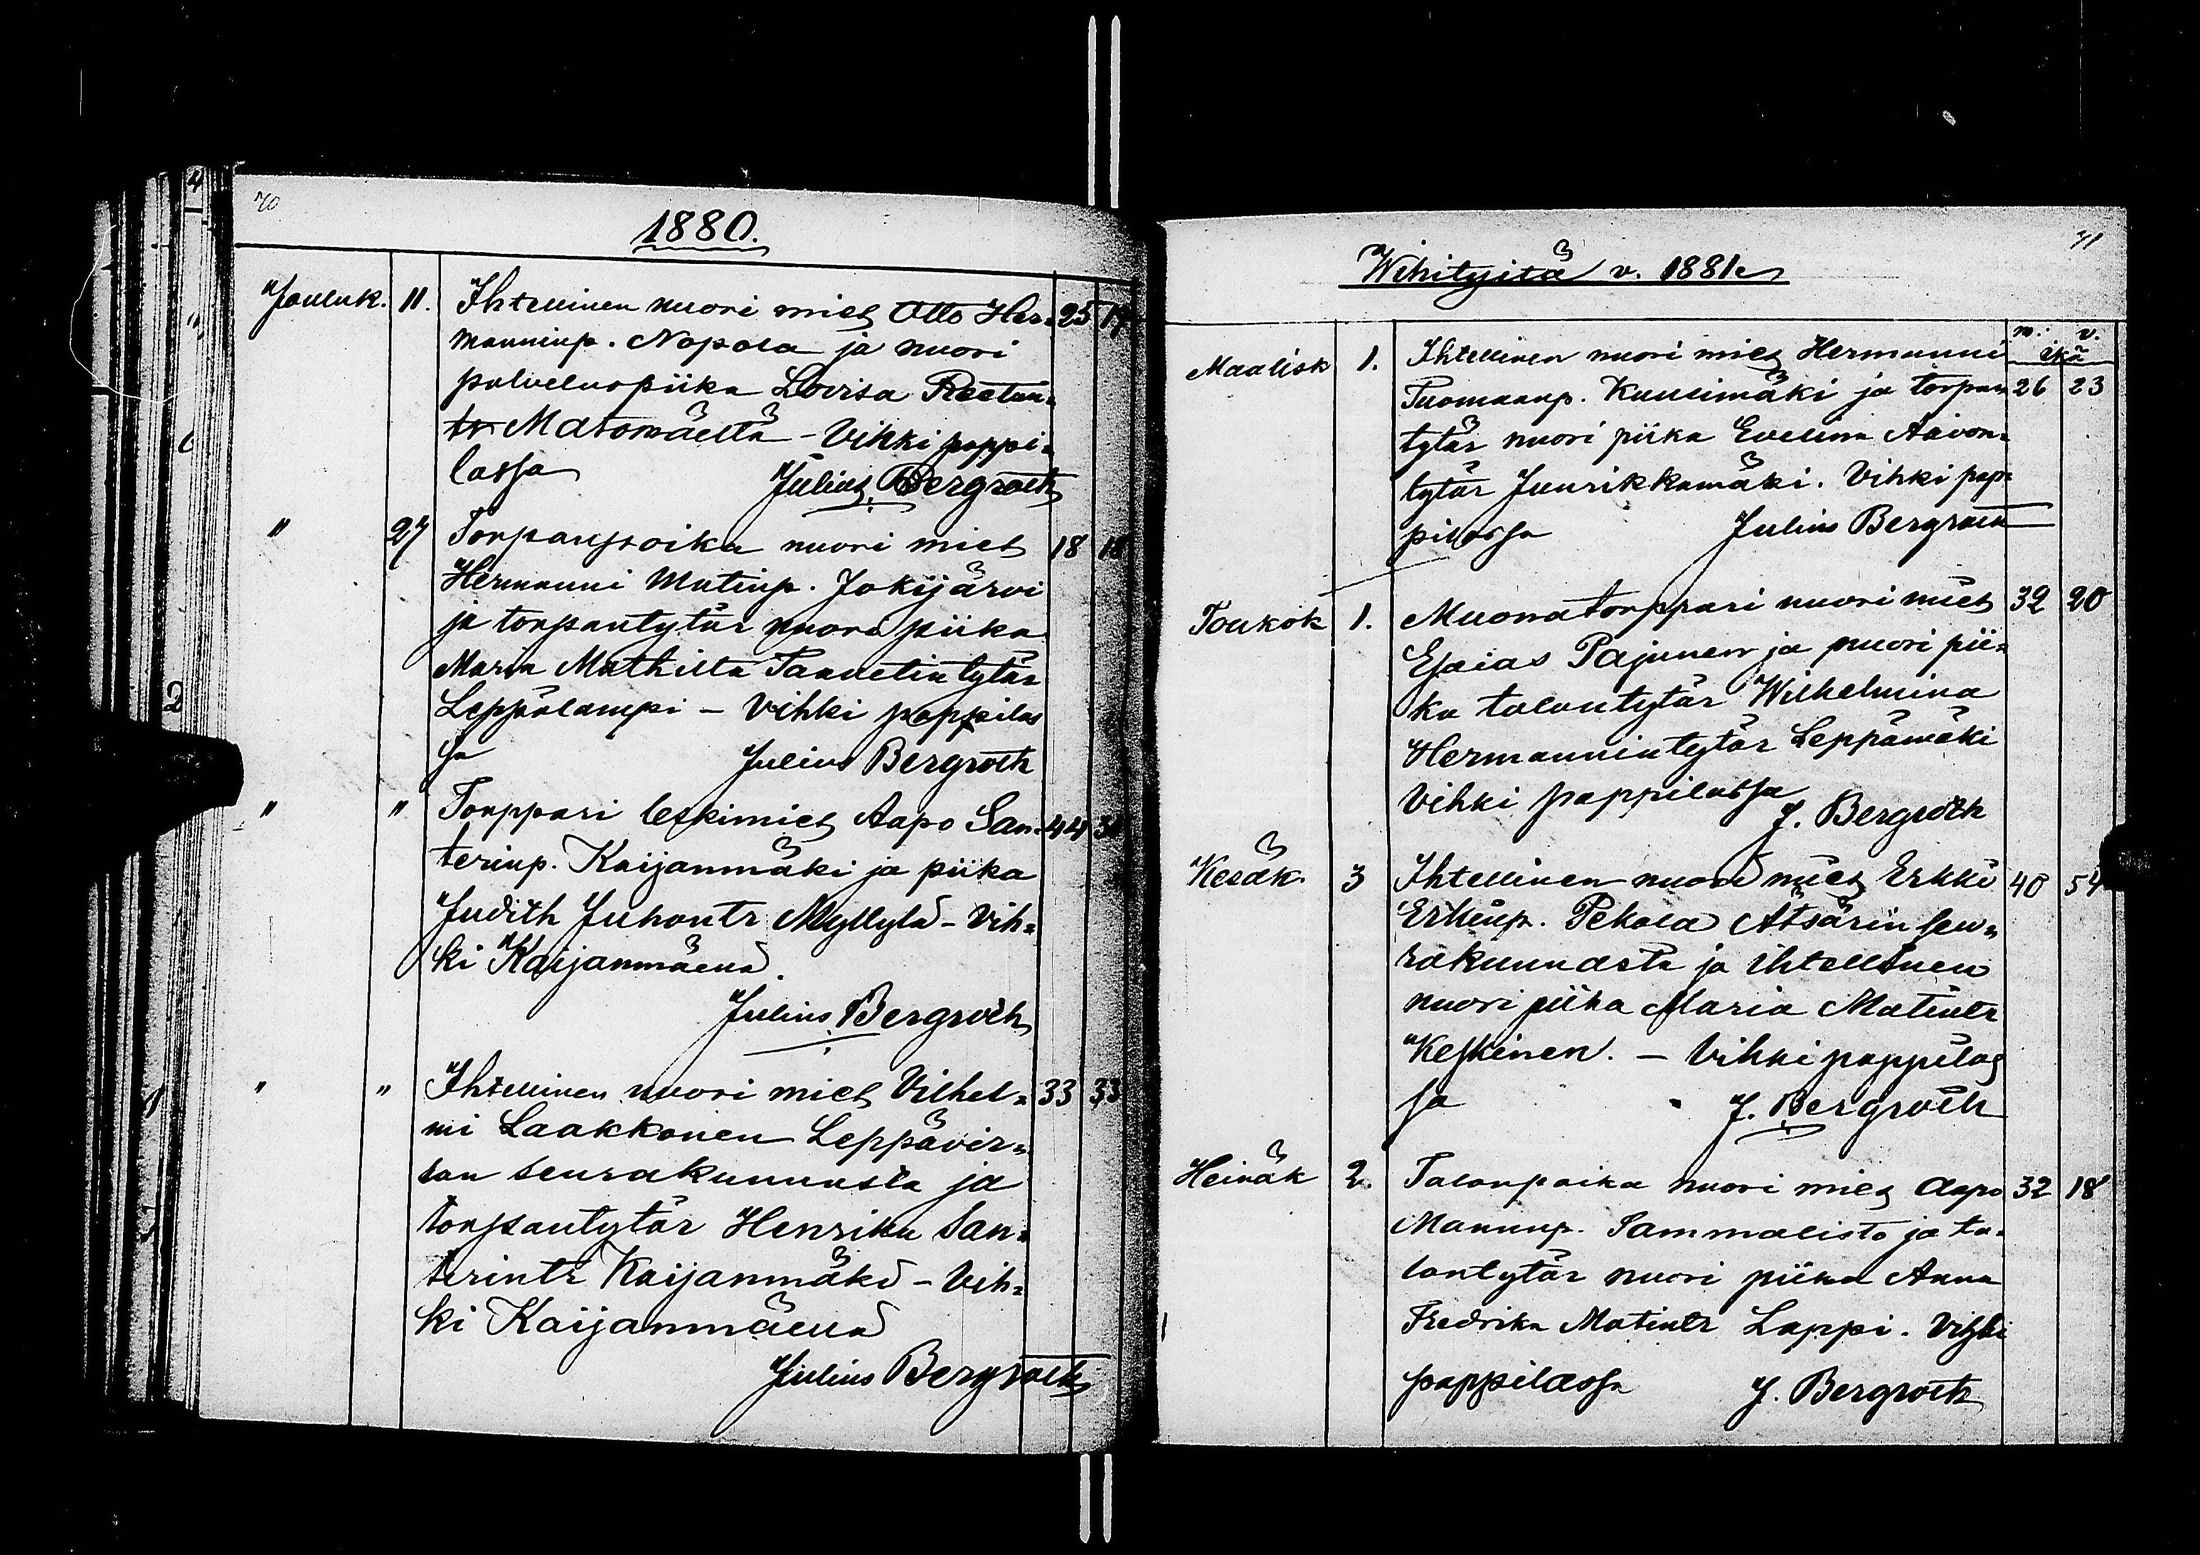 70
1880.
Jouluk. 11. Ihtellinen nuori mies Otto Her= 25 19
manninp. Nopola ja nuori
palveluspiika Lovisa Reetan=
tr Matomäeltä - Vihki pappi=
lassa Julius Bergroth
" 27 Torpanpoika nuori mies 18 18
Hermanni Matinp. Jokijärvi
ja torpantytär nuora piika
Maria Mathilta Taavetintytär
Leppälampi - Vihki pappilas
sa Julius Bergroth
" " Torppari leskimies Aapo San= 44
terinp. Kaijanmäki ja piika
Judith Juhontr Myllylä - Vih=
ki Kaijanmäenä.
Julius Bergroth
" " Ihtellinen nuori mies Vilhel= 33 33
mi Laakkonen Leppävir=
tan seurakunnasta ja
torpantytär Henrika San=
terintr Kaijanmäki - Vih=
ki Kaijanmäenä
Julius Bergroth
71
Wihityitä v. 1881
m. v.
ikä
Maalisk 1. Ihtellinen nuori mies Hermanni
Tuomaanp. Kuusimäki ja torpan 26 23
tytär nuori piika Evelina Aavon=
tytär Juurikkamäki. Vihki pap=
pilassa Julius Bergroth
Toukok 1. Muonatorppari nuori mies 32 20
Esaias Pajunen ja nuori pii=
ka talontytär Wilhelmina
Hermannintytär Leppämäki
Vihki pappilassa
J. Bergroth
Kesäk. 3 Ihtellinen nuori mies Erkki 40 54
Erkinp. Pekola Ätsärin seu=
rakunnasta ja ihtellinen
nuori piika Maria Matintr
Keskinen. - Vihki pappilas
sa J. Bergroth
Heinäk 2. Talonpoika nuori mies Aapo 32 18
Mannp. Sammalisto ja ta=
lontytär nuori piika Anna
Fredrika Matintr Lappi. Vihki
pappilassa J. Bergroth